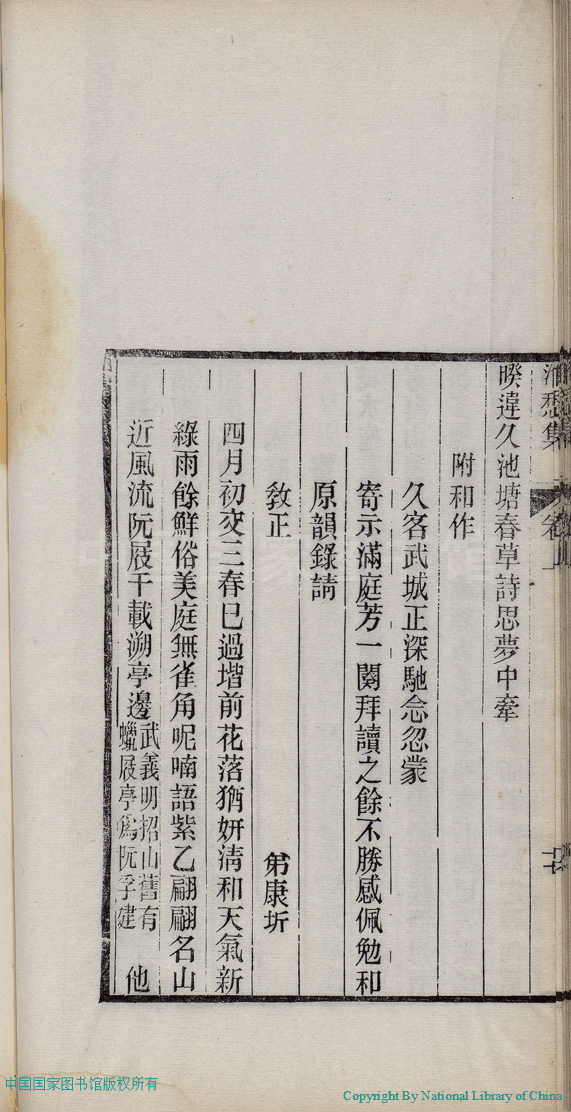 暌違久池塘春草詩思夢中牽
附和作
久客武城正深馳念忽蒙
寄示滿庭芳一闋拜讀之餘不勝感佩勉和
原韻錄請
敎正　弟康圻
四月初交三春已過堦前花落猶妍淸和天氣新
綠雨餘鮮俗美庭無雀角呢喃語紫乙翩翩名山
近風流阮屐千載溯亭邊武義明招山舊有蠟屐亭爲阮孚建他
中国国家图书馆版权所有
Copyright By National Library of China